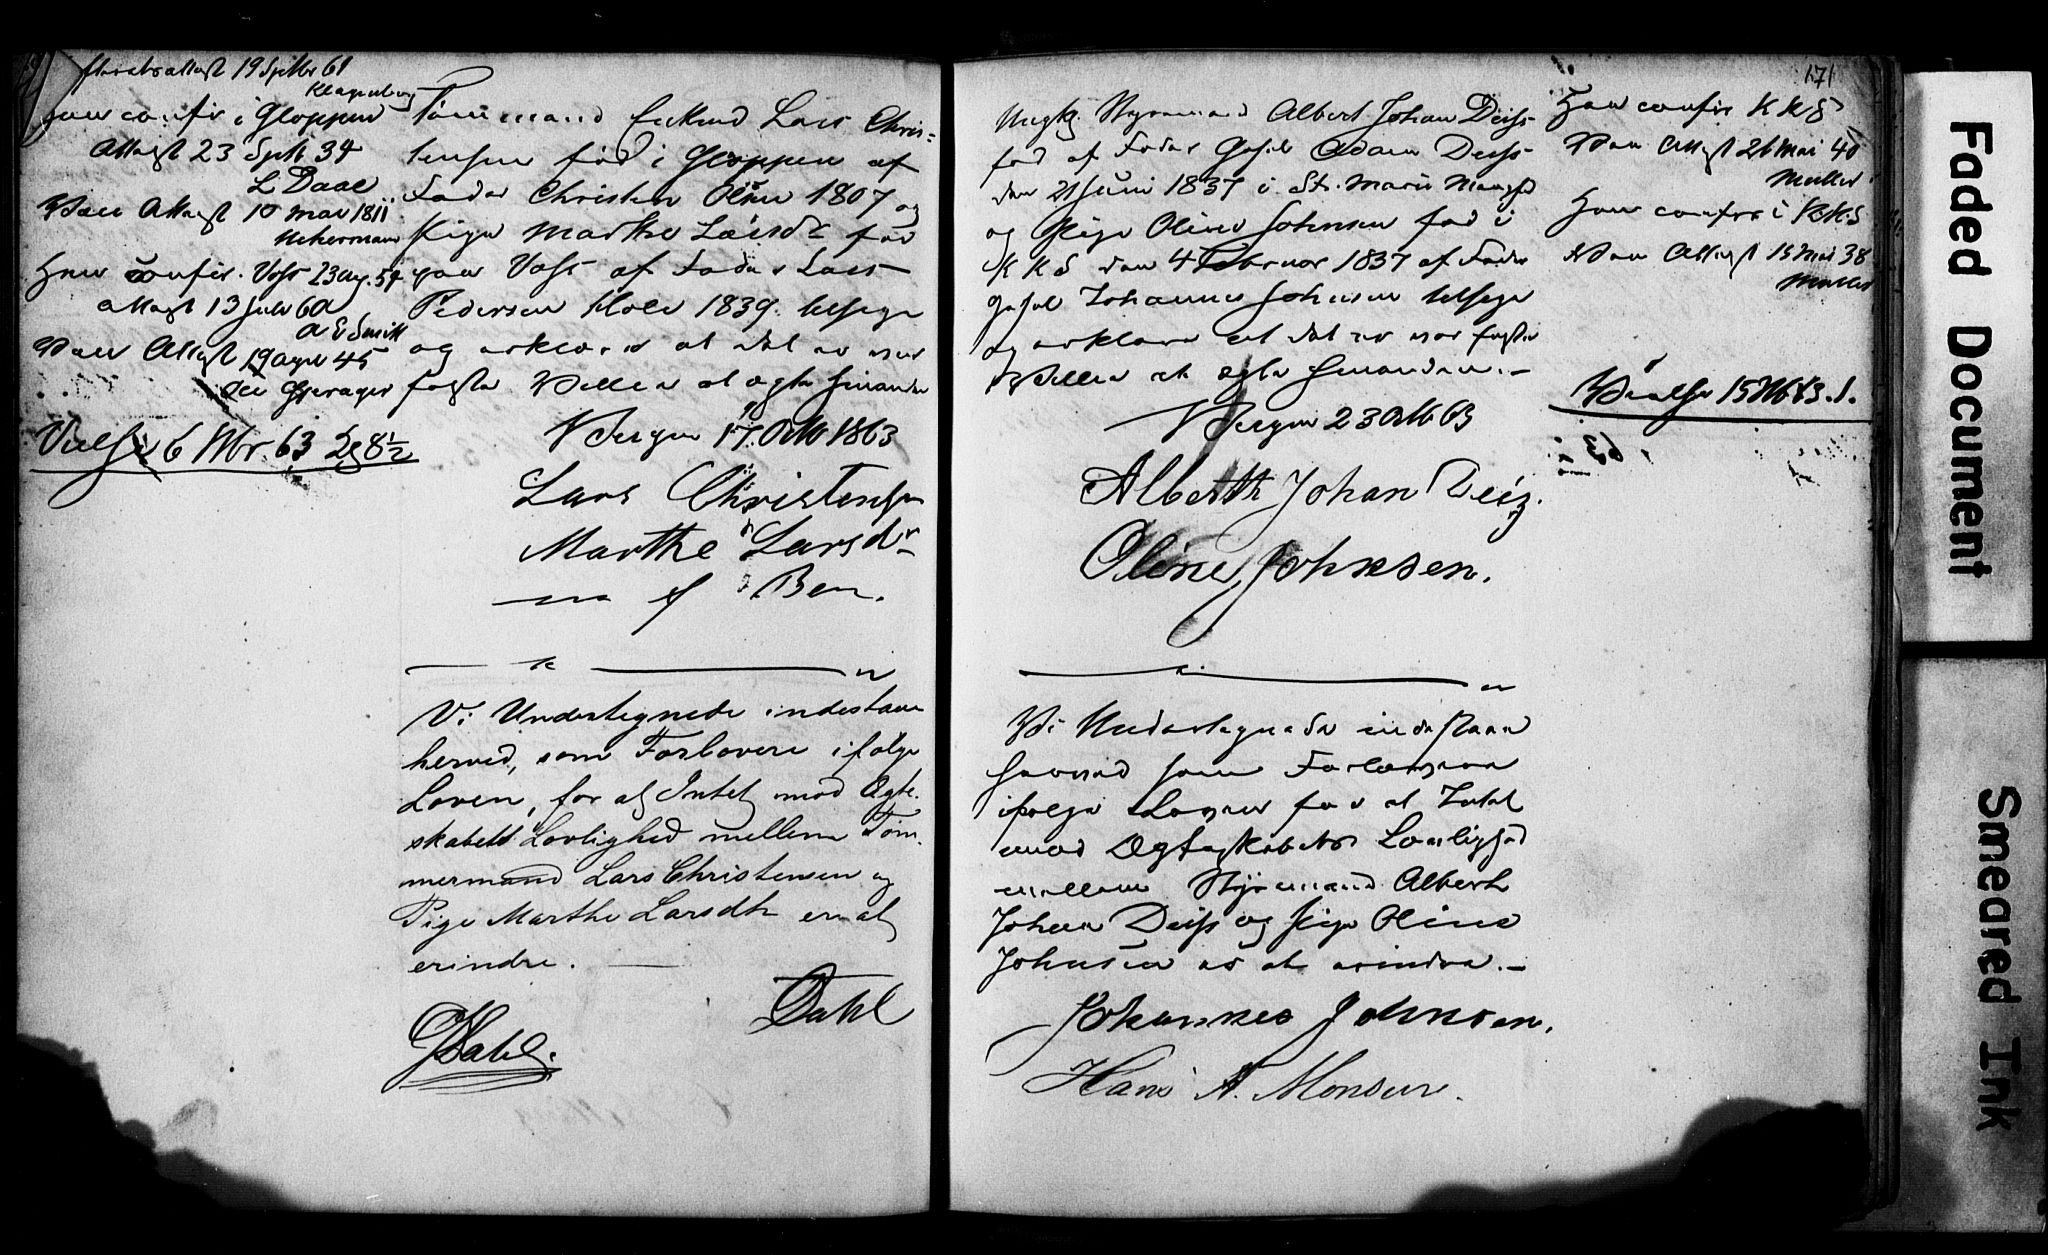 attest 19 Septbr 61
Han confir i Gloppen
Attest 23 Sptb 34
L Daae
Vacc Attest 10 mai 1811
Hun confir. Voss 23 aug. 54
attest 13 Juli 60
A E Smitt
Vacc Attest 19 apr 45
Gjerager
Vielse 6 Nbr. 63 Kl 8½
Tømmermand Enkemd Lars Chris=
tensen fød i Gloppen af
Fader Christen Olsen 1807 og
Pige Marthe Larsdr fød
paa Voss af Fader Lars
Pedersen 1839. begjere
og erklære at det er vor
faste Villie at ægte hinanden
Bergen 17. Oktb 1863
Lars Christensen
Marthe Larsdr
m f Pen.
Vi Undertegnede indestaae
herved, som Forlovere ifølge
Loven, for at Intet mod Ægte-
skabets Lovlighed mellem Tøm-
mermand Lars Christensen og
Pige Marthe Larsdtr er at
erindre.
Dahl
Dahl.
171
Ungkj. Styrmand Albert Johan Deiss
fød af Fader Adam Deiss
den 21 Juni 1837 i St. Marie Menighed
og Pige Oline Johnsen fød i
K K S den 4 Februar 1837 af Fader
Johannes Johnsen begjere
og erklære at det er vor faste
Villie at ægte hinanden.-
Bergen 23 Oktb 63
Alberth Johan Deiz.
Oline Johnsen.
Vi Undertegnede indestaae
herved som Forlovere
ifølge Loven for at Intet
mod Ægteskabets Lovlighed
mellem Styrmand Albert
Johan Deiss og Pige Oline
Johnsen er at erindre.-
Johannes Johnsen.
Hans A. Monsen.
Han confir K K S
Vacc Attest 26 Mai 40
Muller
Hun confir i K.K.S
Vacc Attest 15 Mai 38
Muller
Vielse 15 Nb 63.
Faded Document
Smeared Ink